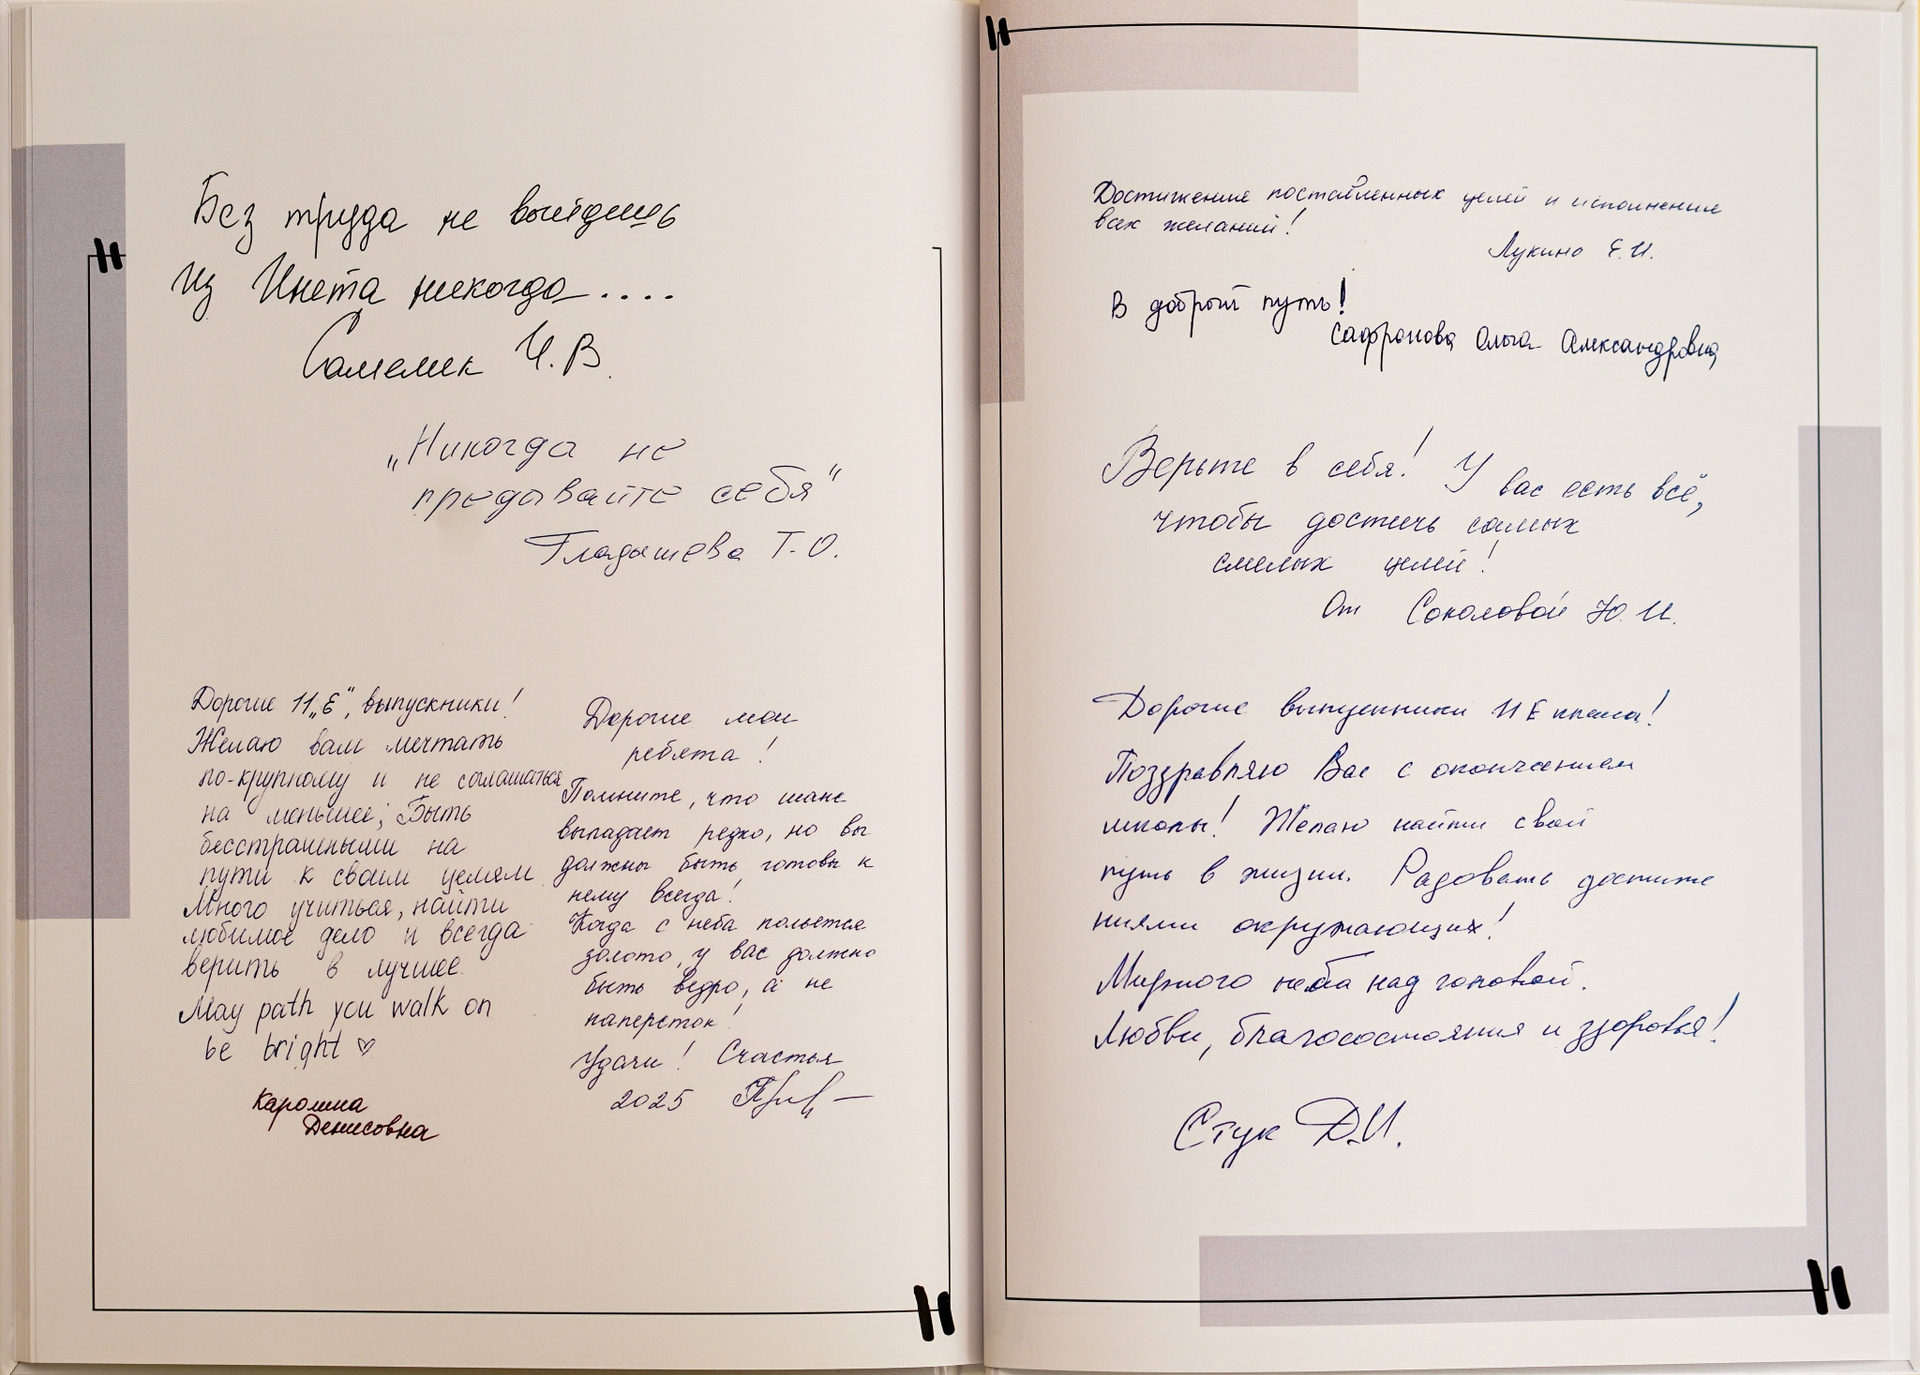 Без труда не выйдешь
из Инета никогда....
Самелик И.В.
„Никогда не
предавайте себя"
Гладышева Т.О.
Дорогие 11„Е", выпускники!
Желаю вам мечтать
по-крупному и не соглашаться
на меньшее; Быть
бесстрашными на
пути к своим целям
Много учиться, найти
любимое дело и всегда
верить в лучшее.
May path you walk on
be bright ♡
Каролина
Денисовна
Дорогие мои
ребята!
Помните, что шанс
выпадает редко, но вы
должны быть готовы к
нему всегда!
Когда с неба польется
золото, у вас должно
быть ведро, а не
наперсток!
Удачи! Счастья
2025
Достижение поставленных целей и исполнение
всех желаний!
Лукина Е.И.
В добрый путь!
Сафронова Ольга Александровна
Верьте в себя! У вас есть всё,
чтобы достичь самых
смелых целей!
От Соколовой Ю.И.
Дорогие выпускники 11 Е класса!
Поздравляю Вас с окончанием
школы! Желаю найти свой
путь в жизни. Радовать достиже
ниями окружающих!
Мирного неба над головой.
Любви, благосостояния и здоровья!
Стук Д.И.